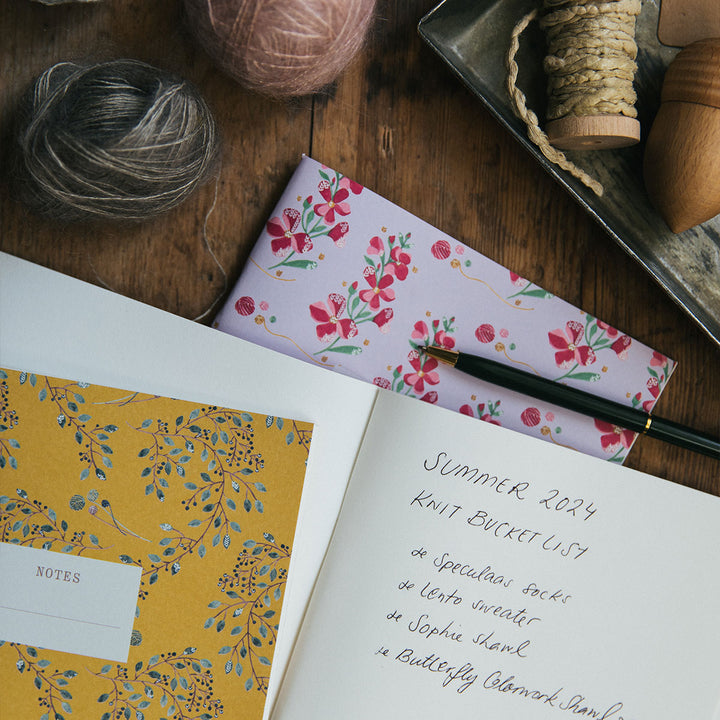 NOTES
SUMMER 2024
KNIT BUCKET LIST
Speculaas socks
Lento sweater
Sophie shawl
Butterfly Colorwork Shawl